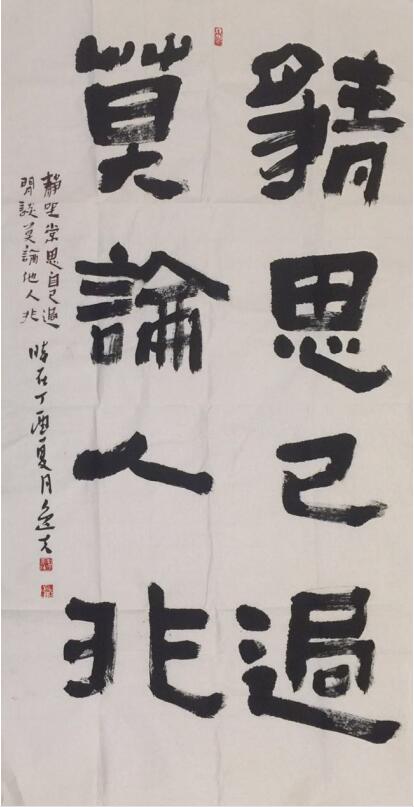 靜思己過
莫論人非
靜坐常思自己過
閒談莫論他人非
時在丁酉夏月